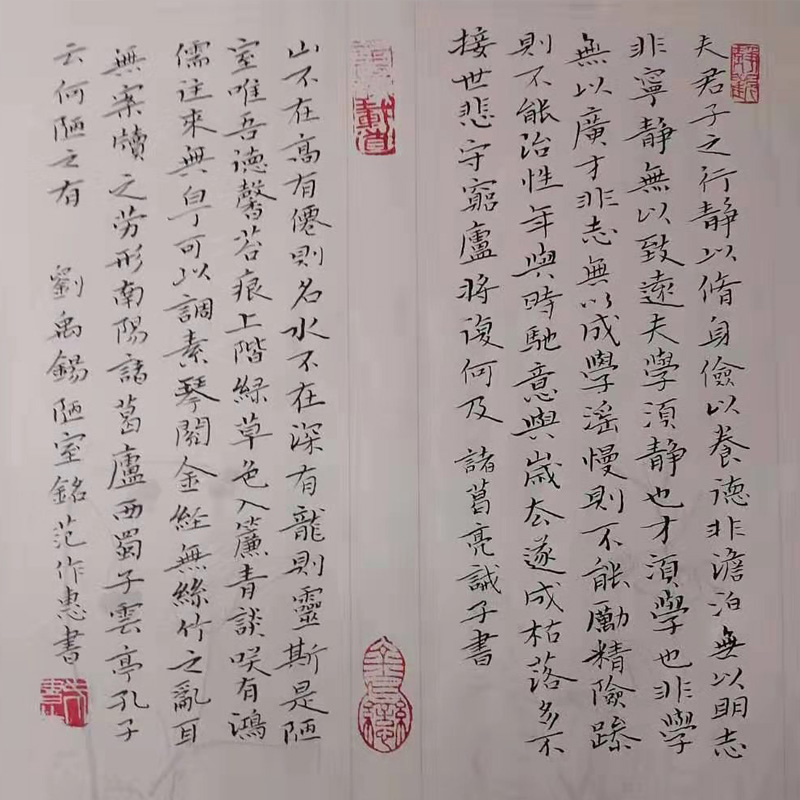 夫君子之行静以脩身儉以養德非澹泊無以明志
非寧静無以致遠夫學須静也才須學也非學
無以廣才非志無以成學滛慢則不能勵精險躁
則不能治性年與時馳意與歲去遂成枯落多不
接世悲守窮廬將復何及 諸葛亮誡子書
山不在高有僊則名水不在深有龍則靈斯是陋
室唯吾德馨苔痕上階綠草色入簾青談咲有鴻
儒往來無白丁可以調素琴閱金经無絲竹之亂耳
無案牘之劳形南陽諸葛廬西蜀子雲亭孔子
云何陋之有 劉禹錫陋室銘范作惠書